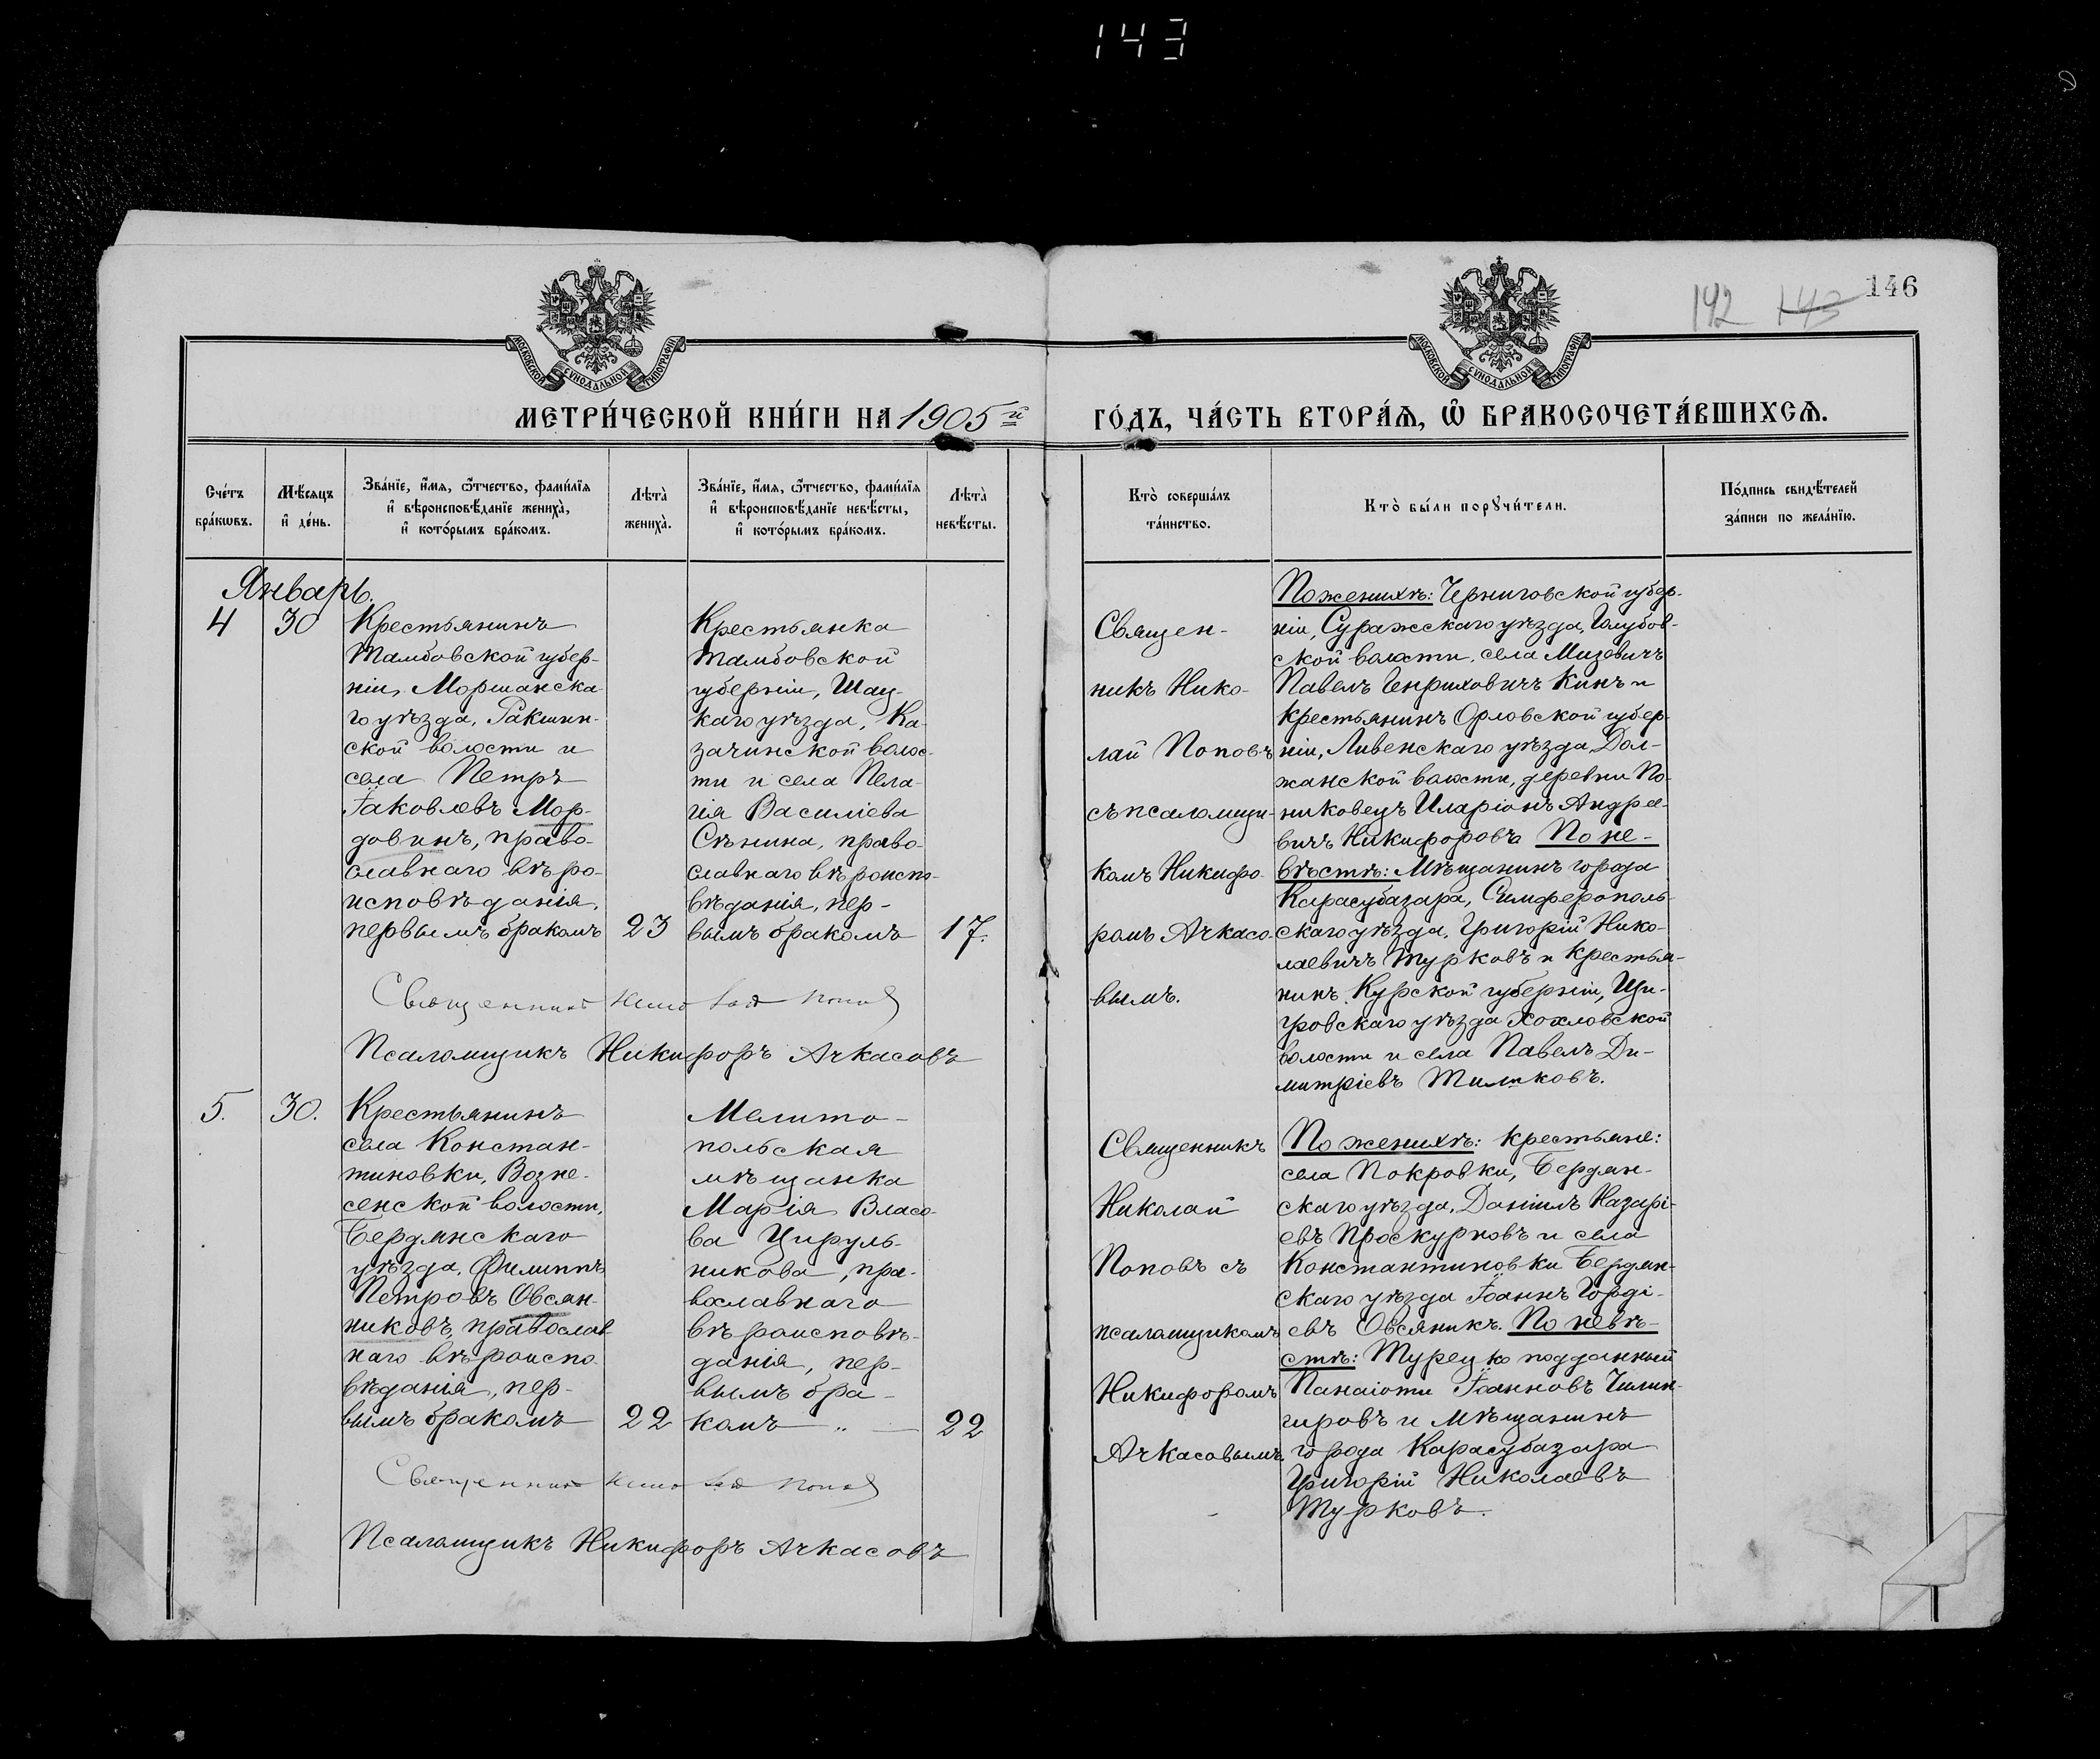 143
142 143 146
МОСКОВСКОЙ СѴНОДАЛЬНОЙ ТИПОГРАФІИ
МОСКОВСКОЙ СѴНОДАЛЬНОЙ ТИПОГРАФІИ
МЕТРИ́ЧЕСКОЙ КНИ́ГИ НА 1905й
ГО́ДЪ, ЧА́СТЬ ВТОРА́Ѧ, Ѡ҆ БРАКОСОЧЕТА́ВШИХСѦ.
Сче́тъ
бра́кѡвъ.
Мѣ́сѧцъ
и҆ де́нь.
Зва́нїе, и҆́мѧ, ѻ҆́тчество, фами́лїѧ
и҆ вѣроисповѣ́данїе жениха̀,
и҆ кото́рымъ бра́комъ.
Лѣта̀
жениха̀.
Зва́нїе, и҆́мѧ, ѻ҆́тчество, фами́лїѧ
и҆ вѣроисповѣ́данїе невѣ́сты,
и҆ кото́рымъ бра́комъ.
Лѣта̀
невѣ́сты.
Кто̀ соверша́лъ
та́инство.
Кто̀ бы́ли порꙋчи́тели.
По́дпись свидѣ́телей
за́писи по жела́нїю.
Январь.
4
30
Крестьянинъ
Тамбовской губер-
ніи, Моршанска-
го уѣзда, Ракшин-
ской волости и
села Петръ
Іаковлевъ Мор-
довинъ, право-
славнаго вѣро-
исповѣданія,
первымъ бракомъ
23
Крестьянка
Тамбовской
губерніи, Шац-
каго уѣзда, Ка-
зачинской волос-
ти и села Пела-
гія Василіева
Сѣнина, право-
славнаго вѣроиспо-
вѣданія, пер-
вымъ бракомъ
17.
Священникъ Николай Поповъ
Псаломщикъ Никифоръ Ачкасовъ
Священ-
никъ Нико-
лай Поповъ
съ псаломщи-
комъ Никифо-
ромъ Ачкасо-
вымъ.
По женихѣ: Черниговской губер-
ніи, Суражскаго уѣзда, Голубов-
ской волости, села Мизевичъ
Павелъ Генриховичъ Кинъ и
крестьянинъ Орловской губер-
ніи, Ливенскаго уѣзда, Дол-
жанской волости, деревни По-
никовецъ Иларіонъ Андрее-
вичъ Никифоровъ. По не-
вѣстѣ: Мѣщанинъ города
Карасубазара, Симферополь-
скаго уѣзда, Григорій Нико-
лаевичъ Турковъ и крестья-
нинъ Курской губерніи, Щи-
гровскаго уѣзда Хохловской
волости и села Павелъ Ди-
митріевъ
5.
30.
Крестьянинъ
села Констан-
тиновки, Возне-
сенской волости,
Бердянскаго
уѣзда, Филиппъ
Петровъ Овсян-
никовъ, православ-
наго вѣроиспо-
вѣданія, пер-
вымъ бракомъ
22
Мелито-
польская
мѣщанка
Марія Власо-
ва Цируль-
никова, пра-
вославнаго
вѣроисповѣ-
данія, пер-
вымъ бра-
комъ — „ —
22
Священникъ Николай Поповъ
Псаломщикъ Никифоръ Ачкасовъ
Священникъ
Николай
Поповъ съ
псаломщикомъ
Никифоромъ
Ачкасовымъ.
По женихѣ: крестьяне:
села Покровки, Бердян-
скаго уѣзда, Даніилъ Назарі-
евъ Проскурновъ и села
Константиновки Бердян-
скаго уѣзда Іоаннъ Горді-
евъ Овсяникъ. По невѣ-
стѣ: Турецко подданный
Панаіоти Іоанновъ Чилин-
гировъ и Мѣщанинъ
города Карасубазара
Григорій Николаевъ
Турковъ.